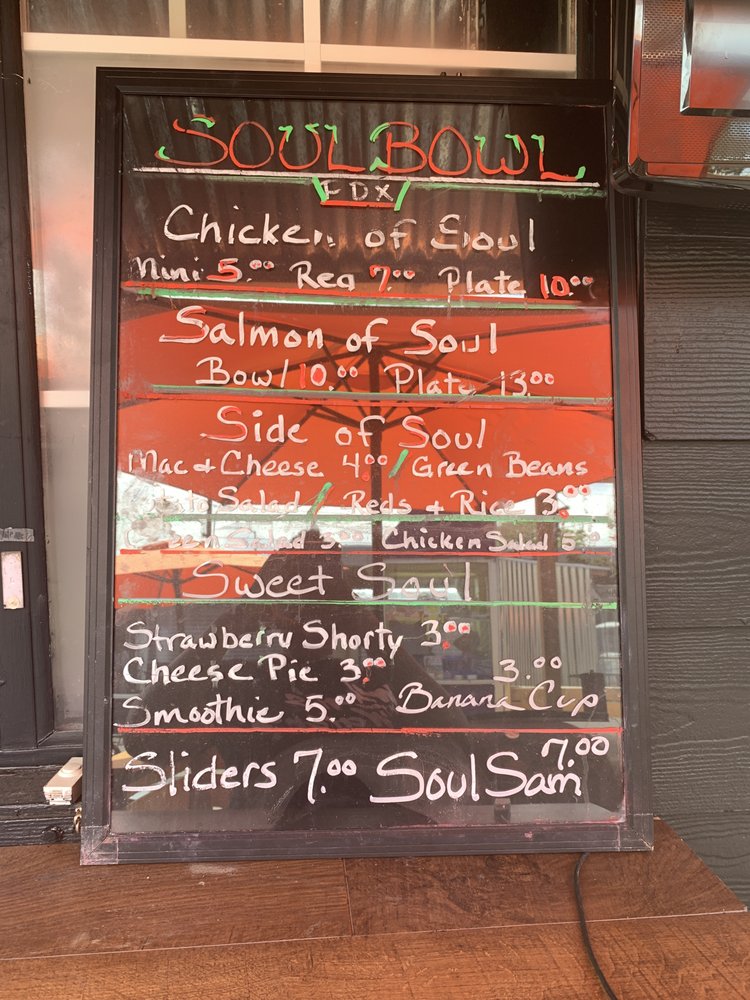 SOUL BOWL
FDX
Chicken of Soul
Mini 5.00 Reg 7.00 Plate 10.00
Salmon of Soul
Bowl 10.00 Plate 13.00
Side of Soul
Mac & Cheese 4.00 / Green Beans
Salad / Reds & Rice 3.00
Green Salad 3.00 Chicken Salad 5.00
Sweet Soul
Strawberry Shorty 3.00
Cheese Pie 3.00 3.00
Smoothie 5.00 Banana Cup
7.00
Sliders 7.00 Soul Sam